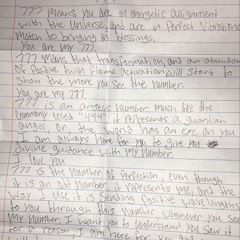 777 Means you are in energetic allignment
with the Universe, and are in Perfect Vibrational
match to bringing in blessings.
You are my 777.
777 means that transformation, and an abundance
of Positive twin flame activation will start to
show the more you see the number.
You are my 777.
777 is an angelic number much like the
commonly used "444" it represents a guardian
angel, or the world has an eye on you
I am always here for you to give you
divine guidance with my number.
I love you
777 is the number of Perfection even though
it is an odd number it represents me, and the
way I use is sending Positive wavelengths
to you through this number whenever you see
My number I want you to understand you saw it
for a reason I am here for you and